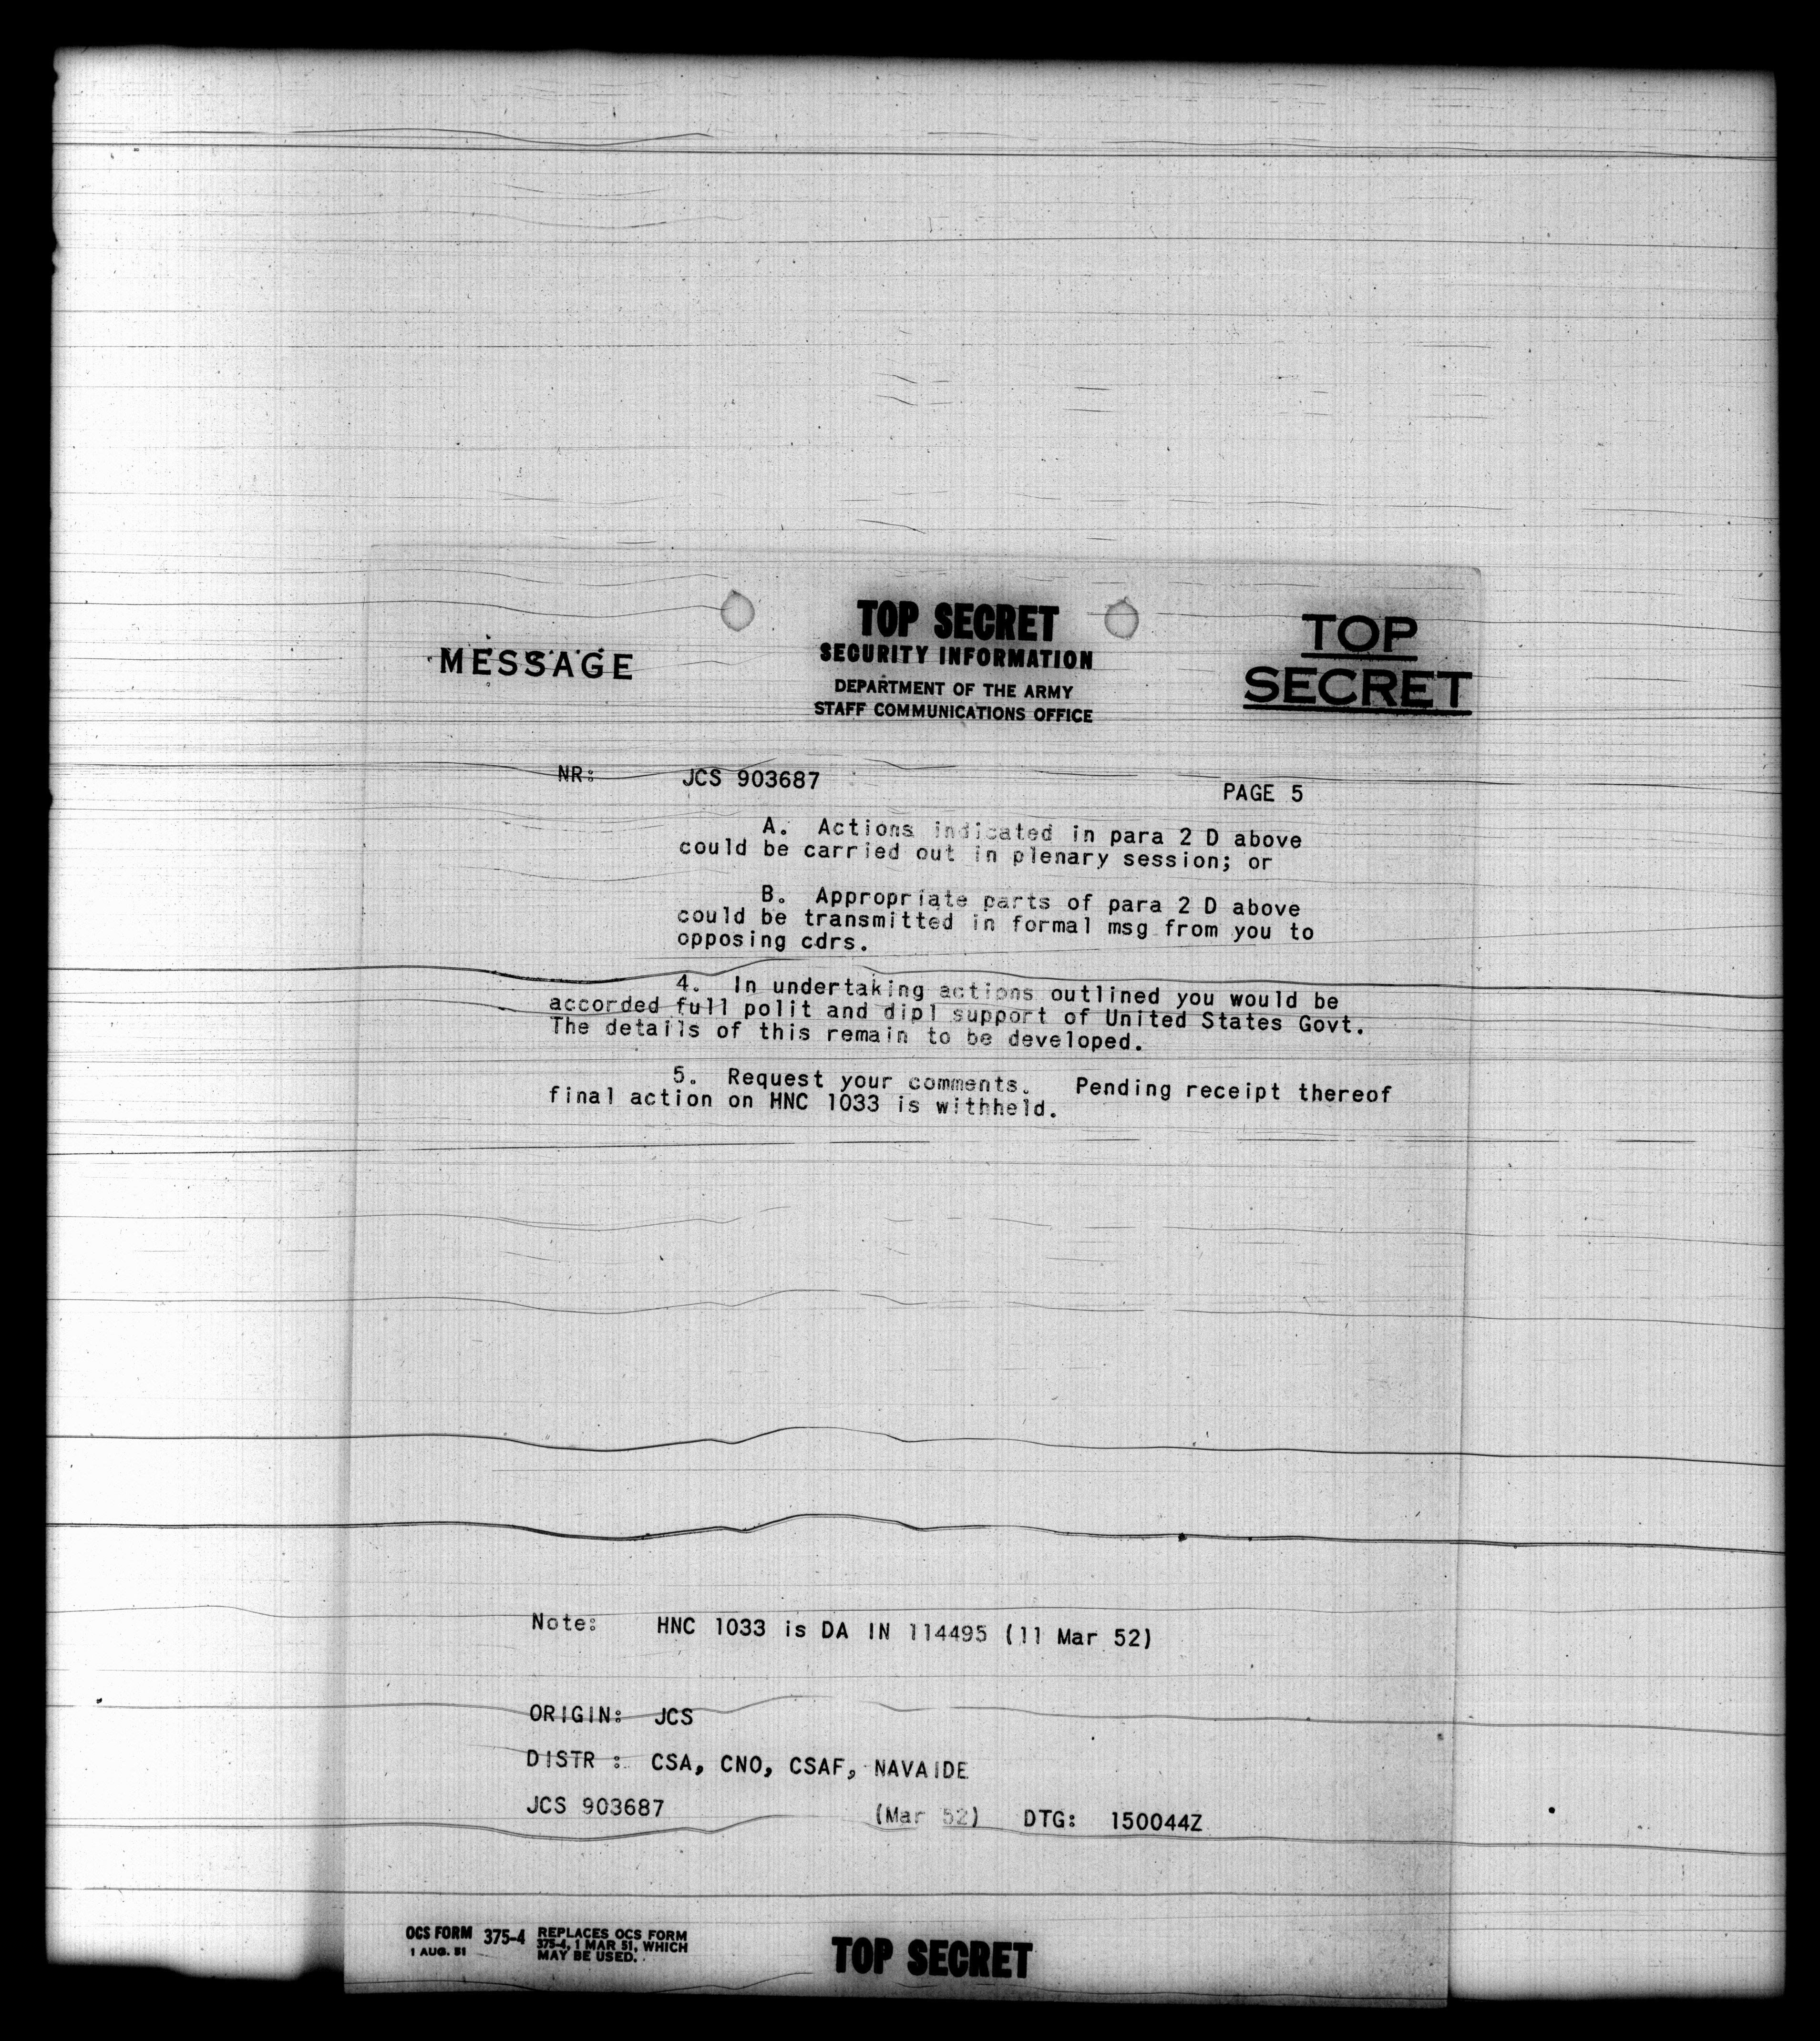 TOP SECRET
SECURITY INFORMATION
DEPARTMENT OF THE ARMY
STAFF COMMUNICATIONS OFFICE
MESSAGE
TOP
SECRET
NR: JCS 903687 PAGE 5
A. Actions indicated in para 2 D above
could be carried out in plenary session; or
B. Appropriate parts of para 2 D above
could be transmitted in formal msg from you to
opposing cdrs.
4. In undertaking actions outlined you would be
accorded full polit and dipl support of United States Govt.
The details of this remain to be developed.
5. Request your comments. Pending receipt thereof
final action on HNC 1033 is withheld.
Note: HNC 1033 is DA IN 114495 (11 Mar 52)
ORIGIN: JCS
DISTR : CSA, CNO, CSAF, NAVAIDE
JCS 903687 (Mar 52) DTG: 150044Z
OCS FORM 375-4 REPLACES OCS FORM
1 AUG. 51 375-4, 1 MAR 51, WHICH
MAY BE USED.
TOP SECRET